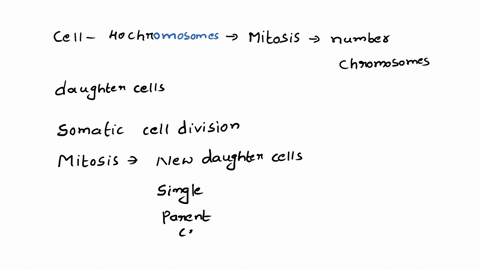 Cell - 40 chromosomes → Mitosis → number
Chromosomes
daughter cells
Somatic cell division
Mitosis → New daughter cells
Single
Parent
C